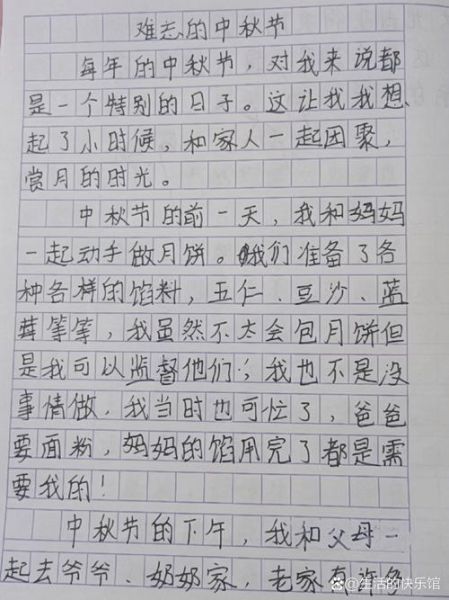 难忘的中秋节
每年的中秋节，对我来说都
是一个特别的日子。这让我我想
起了小时候，和家人一起团聚，
赏月的时光。
中秋节的前一天，我和妈妈
一起动手做月饼。我们准备了各
种各样的馅料，五仁、豆沙、蓝
莓等等，我虽然不太会包月饼但
是我可以监督他们；我也不是没
事情做，我当时也可忙了，爸爸
要面粉，妈妈的馅用完了都是需
要我的！
中秋节的下午，我和父母一
起去爷爷、奶奶家，老家有许
@生活的快乐馆